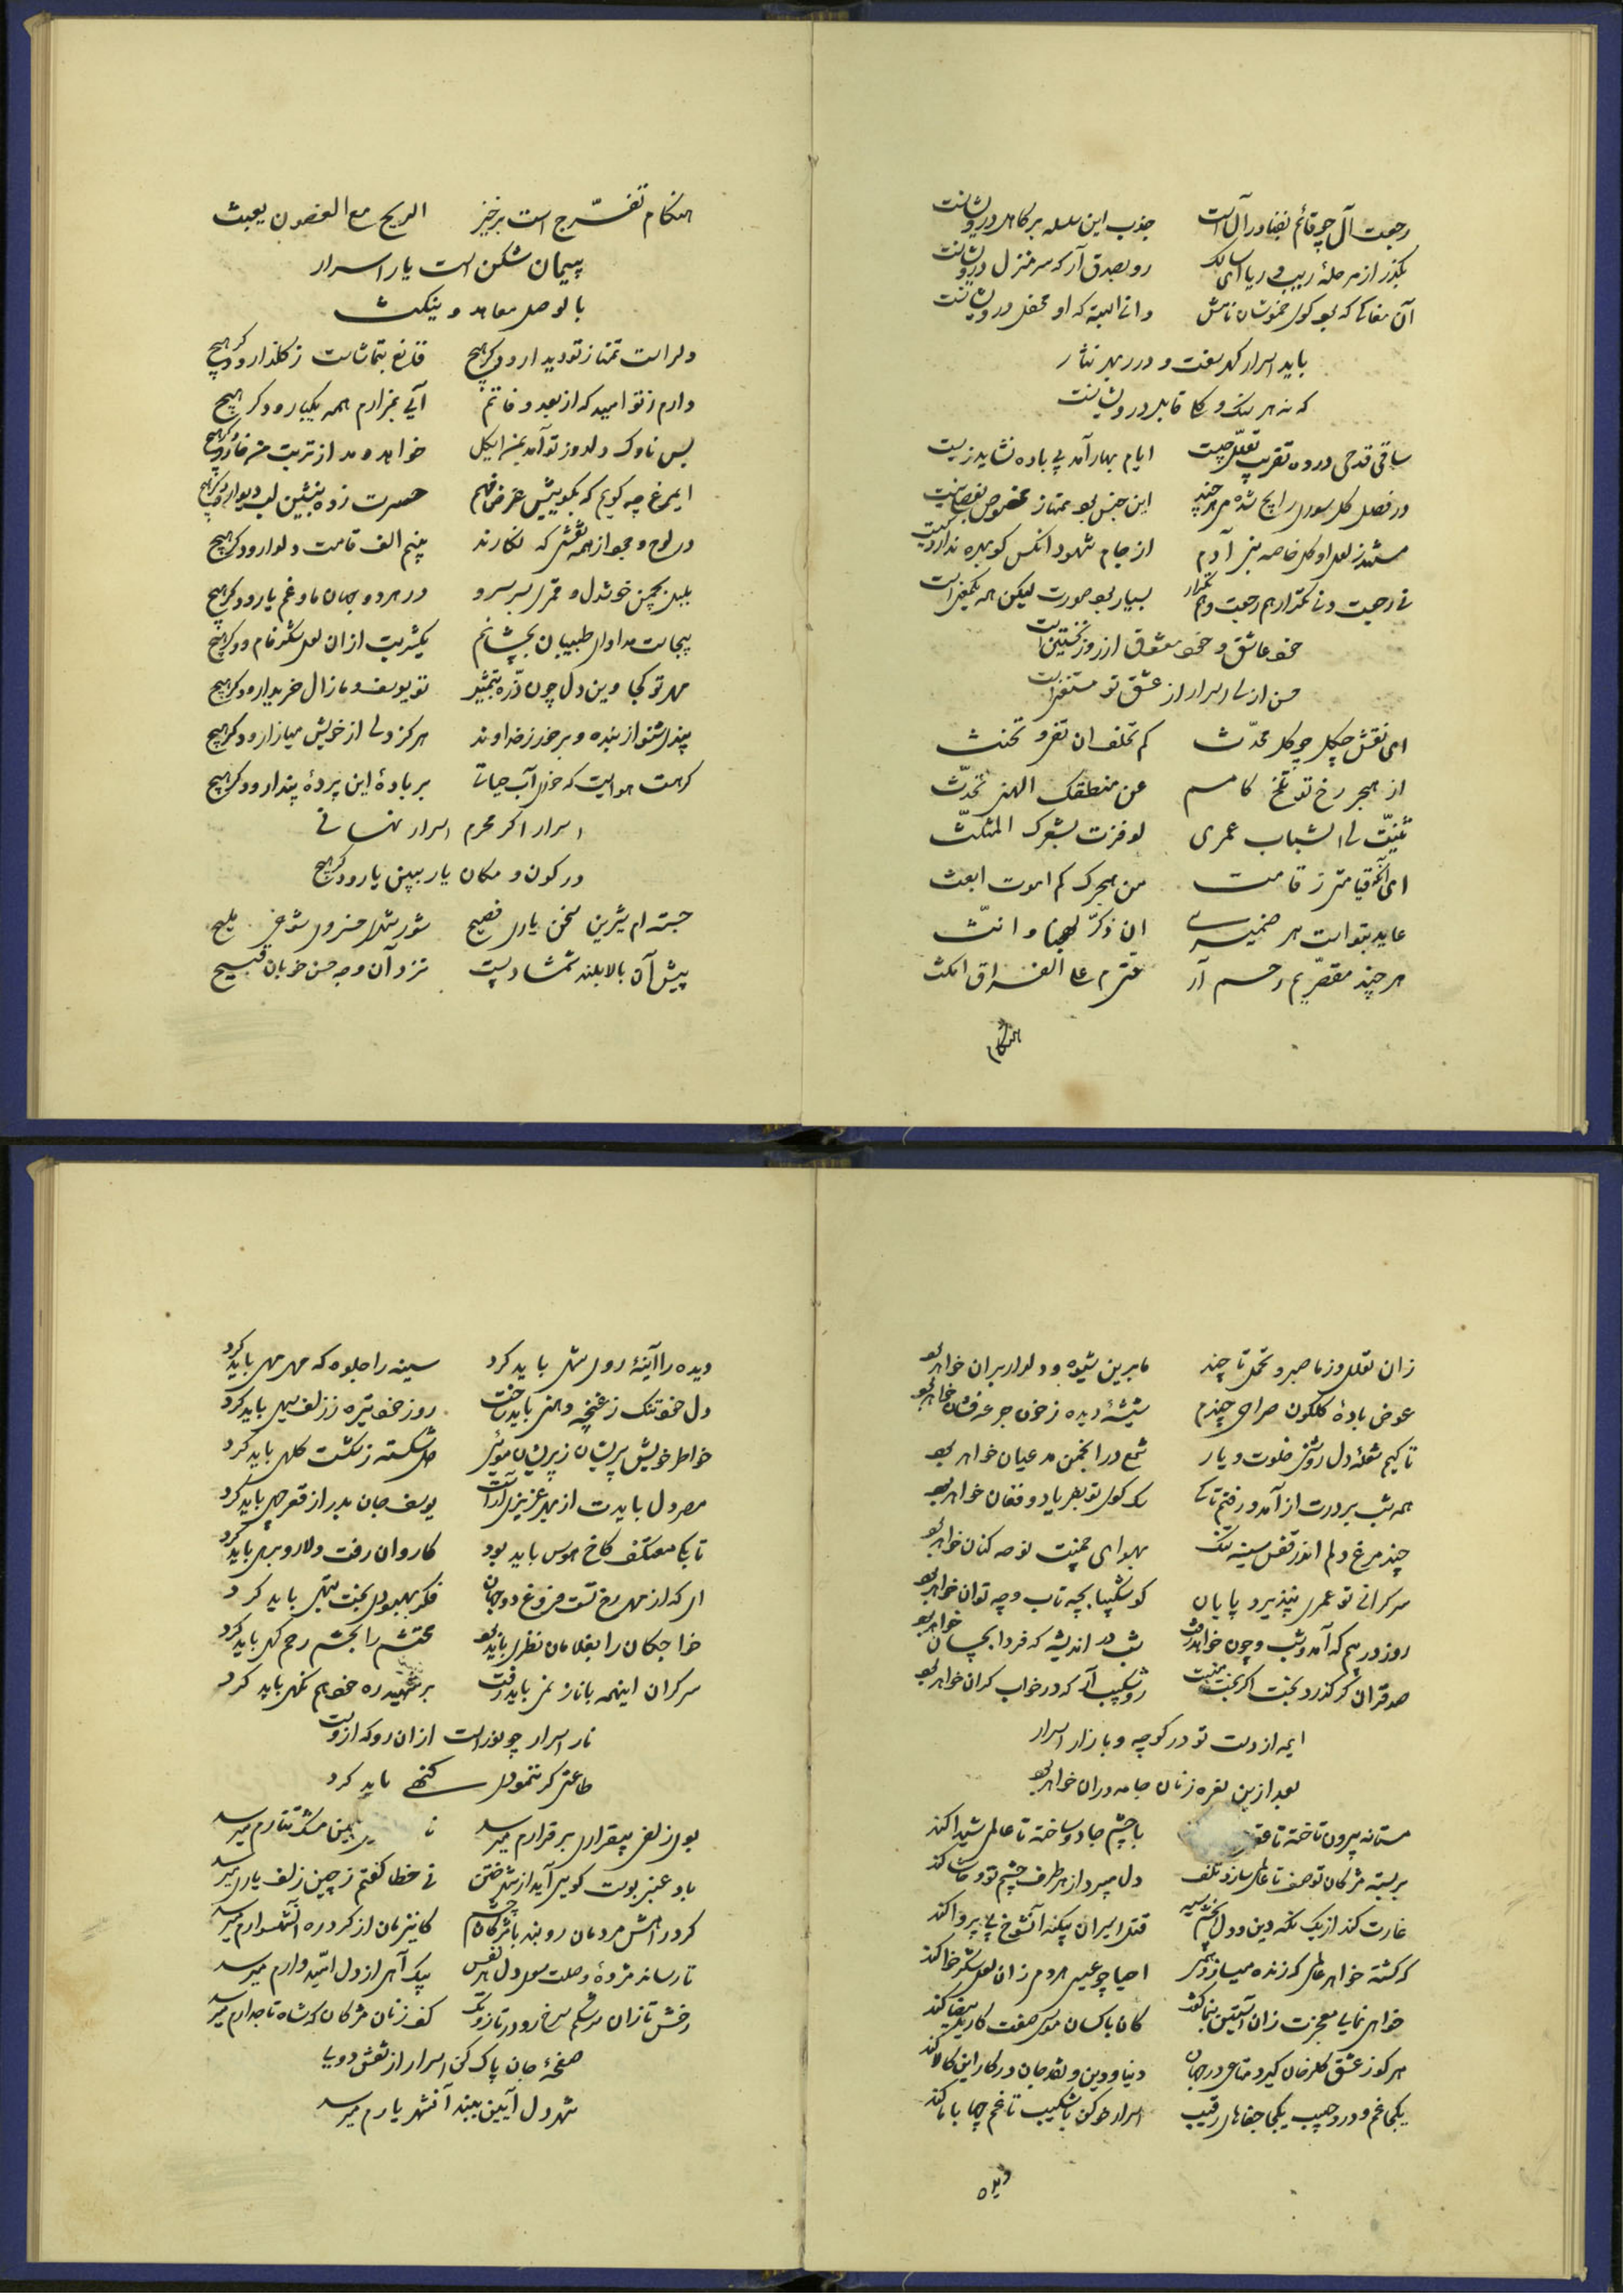 رجعت آل چو قائم بفنا در آل است جذب این سلسله بر کاهل درویشانست
بگذر از مرحلهٔ ریب و ریا ای سالک رو بصدق آر که سر منزل درویشانست
آن مغانی که بود کوی خموشان نامش دانی البته که او محفل درویشانست
باید اسرار گهر سفت و درر بهر نثار
که نه هر سنگ و گلی قابل درویشانست
ساقی قدحی درده تقریب تعلل چیست ایام بهار آمد بی باده نشاید زیست
در فصل گل سوری رایج شده می هرچند این جنس بود ممتاز مخصوص بفصلی نیست
مستند ز لعل او کل خاصه بنی آدم از جام شهود آنکس کو بهره ندارد کیست
نی رجعت و نی تکرار هم رجعت و هم تکرار بسیار بود صورت لیکن همه یکمعنی است
خود عاشق و خود معشوق از روز نخستین است
حسن ازلی اسرار از عشق تو مستغنی است
ای نقش چگل چو گل محدث کم تخلف ان تفی و تحنث
از هجر رخ تو تلخ کامم عن منطقک الهنی تحدث
ثنیت لی الشباب عمری لو فزت بشعرک المثلث
ای آنکه قیامتی ز قامت من هجرک کم اموت ابعث
عاید بتو است هر ضمیری ان ذکر لهنا و انث
هر چند مقصریم رحم آر حتی م علی الفراق امکث
هنگام
هنگام تفرّج است برخیز الریح مع الغصون یعبث
پیمان شکن است یار اسرار
بالوصل معاهد و ینکث
دلراست تمنا ز تو دیدار و دگر هیچ قانع بتماشاست ز گلزار و دگر هیچ
دارم ز تو امید که از بعد وفاتم آیی بمزارم همه یکبار و دگر هیچ
بس ناوک دلدوز تو آمد بمن ایگل خواهد دمد از تربت من خار و دگر هیچ
ایمرغ چه گویم که بگوییش غرض فهم حسرت زده بنشین لب دیوار و دگر هیچ
در لوح و جود از همه نقشی که نگارند بینم الف قامت دلدار و دگر هیچ
بلبل بچمن خوشدل و قمری بسر سرو در هر دو جهان ما و غم یار و دگر هیچ
بیجاست مداوای طبیبان بچشانم یکشربت از ان لعل شکر فام و دگر هیچ
مهر تو کجا وین دل چون ذرّه بتمثیل تو یوسف و ما زال خریدار و دگر هیچ
پندی شنو از بنده و برخور ز خداوند هرگز دلی از خویش میازار و دگر هیچ
گر هست هوایت که خوری آب حیاتی بر بادهٔ این پردهٔ پندار و دگر هیچ
اسرار اگر محرم اسرار نهانی
در کون و مکان یار ببین یار و دگر هیچ
جسته ام شیرین سخن یاری فصیح شور شکر خسروی شوخی ملیح
پیش آن بالا بلند شمشاد پست نزد آن وجه حسن خوبان قبیح
زان تعلل ورز ما صبر و تحمل تا چند ما برین شیوه و دلدار بران خواهد بود
عوض بادهٔ گلگون صراحی چندم شیشهٔ دیده ز خون جرعه فشان خواهد بود
تا کیم شعلهٔ دل روشنی خلوت و یار شمع در انجمن مدعیان خواهد بود
همه شب بر درت از آمد و رفتم تا کی سگ کوی تو بفریاد و فغان خواهد بود
چند مرغ دلم اندر قفس سینه تنگ بهوای چمنت نوحه کنان خواهد بود
سرگرانی تو عمری نپذیرد پایان کو شکیبا بچه تاب و چه توان خواهد بود
روز در بیم که آمد شب و چون خواهد رفت شب در اندیشه که فردا بچه سان خواهد بود
صد قران گر گذرد بخت اگر بخت منست رو شکیب آر که در خواب گران خواهد بود
ایمه از دست تو در کوچه و بازار اسرار
بعد ازین نعره زنان جامه دران خواهد بود
مستانه بیرون تاخته تا با چشم جادو ساخته تا عالمی شیدا کند
بر بسته مژگان تو صف تا عالمی سازد تلف دل میبرد از هر طرف چشم تو و حاشا کند
غارت کند از یک نگه دین و دل از چشم سیه قتل اسیران بیگنه آنشوخ بی پروا کند
گر کشته خواهد عالمی که زنده میسازد همی احیا چو عیسی هر دمی زان لعل شکرخا کند
خواهی نمایی معجزت زان آستین بنما کفت کان با کسان موسی صفت کار ید بیضا کند
هر کو ز عشق گلرخان گیرد متاعی در جهان دنیا و دین و نقد جان در کار این کالا کند
یکجا غم و درد حبیب یکجا جفاهای رقیب اسرار خو کن با شکیب تا غم چها با ما کند
دیده
دیده را آینهٔ روی شهی باید کرد سینه را جلوه که مهر مهی باید کرد
دل خود تنگ ز غنچه دهنی باید ساخت روز خود تیره ز زلف سیهی باید کرد
خواطر خویش پریشان ز پریشان موئی دل شکسته ز شکست کلهی باید کرد
مصر دل بایدت از بهر عزیزی آراست یوسف جان بدر از قعر چهی باید کرد
تا بکی معتکف کاخ هوس باید بود کاروان رفت دلا رو برهی باید کرد
ای که از مهر رخ تست فروغ دو جهان فکر بهبودی بخت تبهی باید کرد
خواجگان را بغلامان نظری باید بود محتشم را بحشم رحم گهی باید کرد
سرگران اینهمه با ناز نمی باید رفت بر شهید ره خود هم نگهی باید کرد
نار اسرار چو نوراست از ان رو که از وست
طاعتی گر ننمودی گنهی باید کرد
بوی زلفی بیقراری بر قرارم میرسد مشک تتارم میرسد
باد عنبر بوست گویی آید از شهر ختن نی خطا گفتم ز چین زلف یاری میرسد
گرد راهش مردمان روبند با مژگان چشم کاینزمان از گرد ره آن شهسوارم میرسد
تا رساند مژدهٔ وصلت سوی دل هر نفس پیک آهی از دل امیدوارم میرسد
رخش تازان سرخ رو در تاز و تک کف زنان مژگان که شاه تاجدارم میرسد
صفحهٔ جان پاک کن اسرار از نقش دویی
شهر دل آیین ببند آنشهریارم میرسد